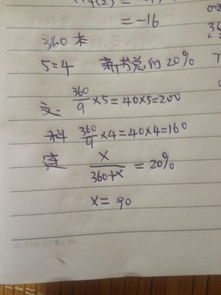 = -16
360本
5=4 新书总的20%
文: 360/9×5=40×5=200
科 360/9×4=40×4=160
x/(360+x)=20%
x=90